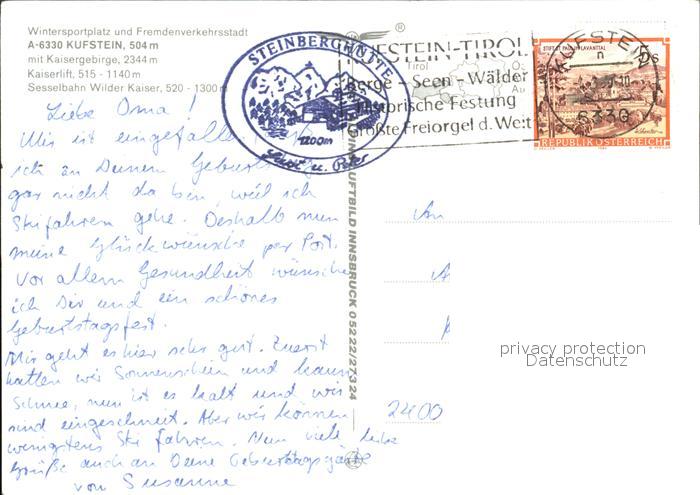 Wintersportplatz und Fremdenverkehrsstadt
A-6330 KUFSTEIN, 504 m
mit Kaisergebirge, 2344 m
Kaiserlift, 515 - 1140 m
Sesselbahn Wilder Kaiser, 520 - 1300 m
STEINBERGHÜTTE
1200m
u. Peter
KUFSTEIN-TIROL
Berge - Seen - Wälder
Historische Festung
Größte Freiorgel d. Welt
KUFSTEIN
6330
STIFT ST. PAUL IM LAVANTTAL
REPUBLIK ÖSTERREICH
Liebe Oma!
Mir ist eingefallen
ich an Deinem Geburtstag
gar nicht da bin, weil ich
Skifahren gehe. Deshalb nun
meine Glückwünsche per Post.
Vor allem Gesundheit wünsche
ich Dir und ein schönes
Geburtstagsfest.
Mir geht es hier sehr gut. Zuerst
hatten wir Sonnenschein und kaum
Schnee, nun ist es kalt und wir
sind eingeschneit. Aber wir können
wenigstens Ski fahren. Nun viele liebe
Grüße auch an Deine Geburtstagsgäste
von Susanne
LUFTBILD INNSBRUCK 05222/27324
An
A
2400
privacy protection
Datenschutz